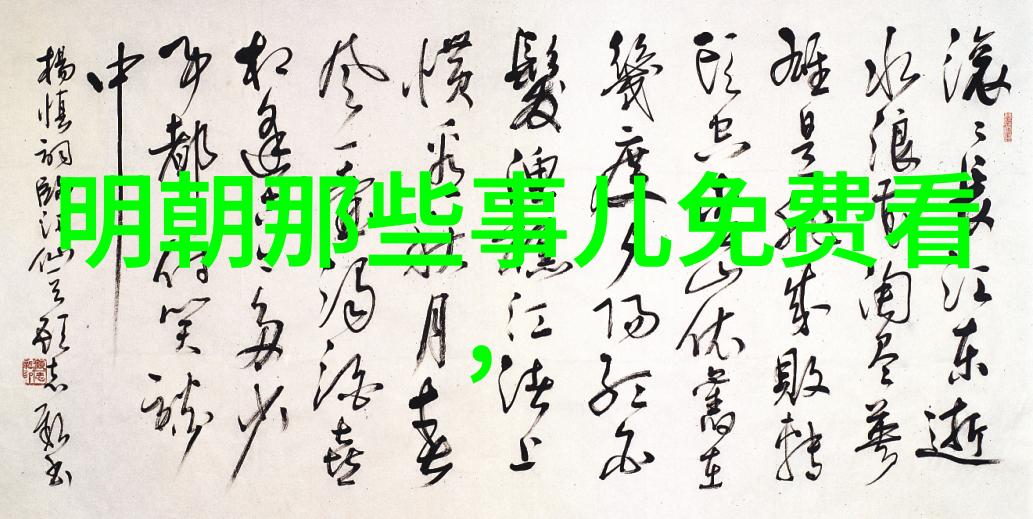 明朝那些事儿免费看
,
滚〻长江东逝
水浪花淘尽英
雄是非成敗轉
头空青山依舊在
幾度夕阳红白
髮渔樵江渚上
惯看秋月春
风一壶浊酒喜
相逢古今多少
事都付笑谈
中
楊慎词临江仙